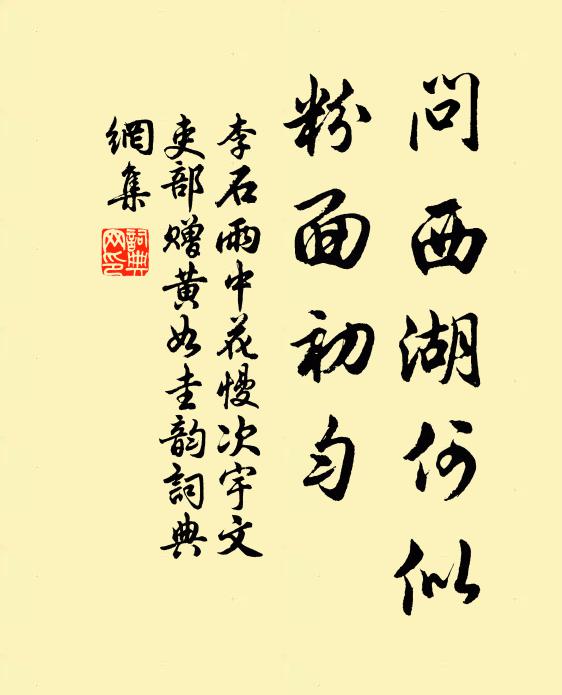 问西湖何似
粉面初匀
李石雨中花慢次宇文
吏部赠黄如圭韵詞典
網集
詞典
网印